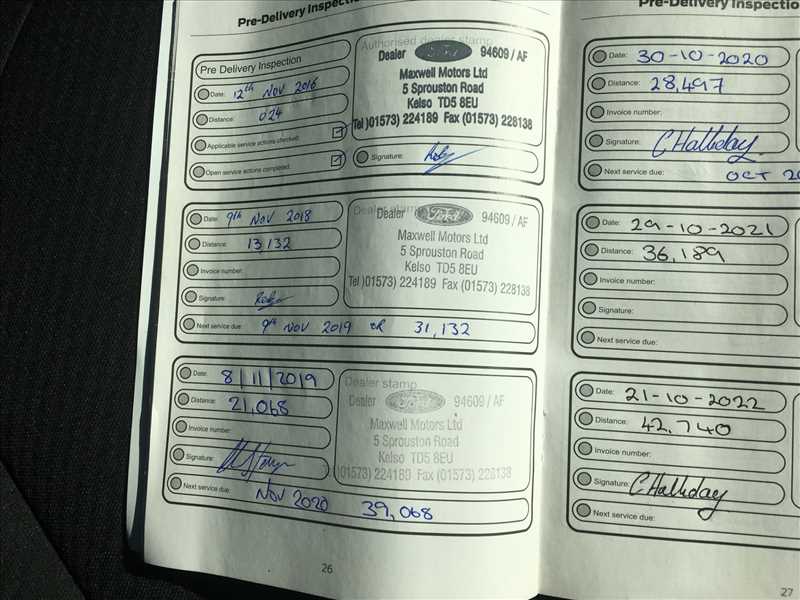 Pre-Delivery Inspection
Pre Delivery Inspection
Date: 12th Nov 2016
Distance: 024
Applicable service actions checked:
Open service actions completed:
Authorised dealer stamp
Dealer Ford 94609 / AF
Maxwell Motors Ltd
5 Sprouston Road
Kelso TD5 8EU
Tel )01573) 224189 Fax (01573) 228138
Signature:
Date: 9th Nov 2018
Distance: 13,132
Invoice number:
Signature:
Next service due: 9th Nov 2019 or 31,132
Dealer stamp
Dealer Ford 94609 / AF
Maxwell Motors Ltd
5 Sprouston Road
Kelso TD5 8EU
Tel )01573) 224189 Fax (01573) 228138
Date: 8/11/2019
Distance: 21,068
Invoice number:
Signature:
Next service due: Nov 2020 39,068
Dealer stamp
Dealer Ford 94609 / AF
Maxwell Motors Ltd
5 Sprouston Road
Kelso TD5 8EU
01573) 224189 Fax (01573) 228138
26
Pre-Delivery Inspectio
Date: 30-10-2020
Distance: 28,497
Invoice number:
Signature: C Halliday
Next service due: OCT 20
Date: 29-10-2021
Distance: 36,189
Invoice number:
Signature:
Next service due:
Date: 21-10-2022
Distance: 42,740
Invoice number:
Signature: C Halliday
Next service due:
27